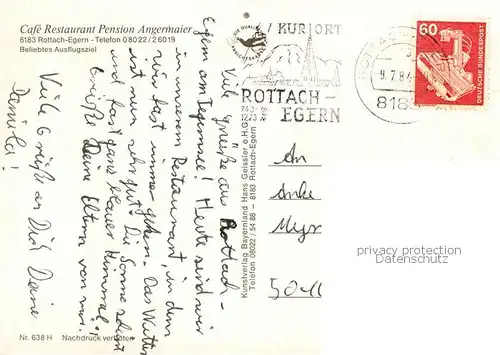 Café Restaurant Pension Angermaier
8183 Rottach-Egern - Telefon 0 80 22 / 2 60 19
Beliebtes Ausflugsziel
Viele Grüße aus Rottach-
Egern am Tegernsee! Heute sind wir
in unserem Restaurant, in dem
wir fast immer gehen. Das Wetter
ist nun sehr gut. Die Sonne scheint
und fast ganz blauer Himmel!
Grüße Deine Eltern von mir.
Viele Grüße an Dich Deine
Daniela!
Nr. 638 H
Nachdruck verboten
Kunstverlag Bayernland Hans Geissler o.H.G.
Telefon 08022 / 54 88 - 8183 Rottach-Egern
KURORT
ROTTACH-
EGERN
9.7.84
8183
60
DEUTSCHE BUNDESPOST
An
Anke
privacy protection
www.ansichtskarten-center.de